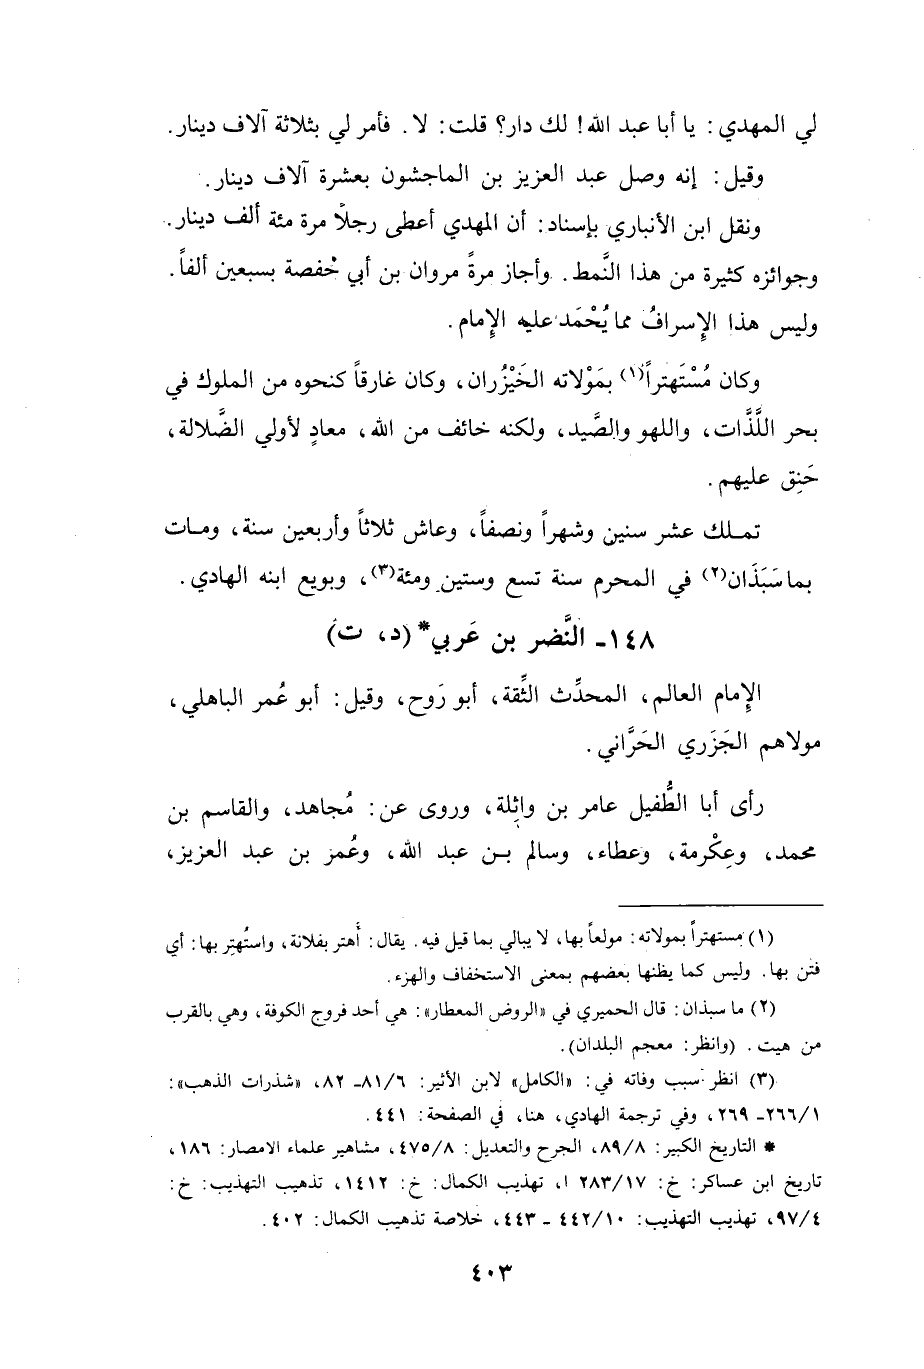 لي المهدي: يا أبا عبد الله! لك دار؟ قلت: لا. فأمر لي بثلاثة آلاف دينار.
وقيل: إنه وصل عبد العزيز بن الماجشون بعشرة آلاف دينار.
ونقل ابن الأنباري بإسناد: أن المهدي أعطى رجلاً مرة مئة ألف دينار.
وجوائزه كثيرة من هذا النَّمط. وأجاز مرةً مروان بن أبي حُفصة بسبعين ألفاً.
وليس هذا الإِسرافُ مما يُحْمَد عليه الإِمام.
وكان مُسْتَهتراً(١) بمَوْلاته الخَيْزُران، وكان غارقاً كنحوه من الملوك في
بحر اللَّذَّات، واللهو والصَّيد، ولكنه خائف من الله، معادٍ لأولي الضَّلالة،
حَنِق عليهم.
تملك عشر سنين وشهراً ونصفاً، وعاش ثلاثاً وأربعين سنة، ومات
بماسَبَذَان(٢) في المحرم سنة تسع وستين ومئة(٣)، وبويع ابنه الهادي.
١٤٨ـ النَّضر بن عَربي* (د، ت)
الإِمام العالم، المحدِّث الثِّقة، أبو رَوح، وقيل: أبو عُمر الباهلي،
مولاهم الجَزَري الحَرَّاني.
رأى أبا الطُّفيل عامر بن واثِلة، وروى عن: مُجاهد، والقاسم بن
محمد، وعِكْرمة، وعطاء، وسالم بن عبد الله، وعُمر بن عبد العزيز،
(١) مستهتراً بمولاته: مولعاً بها، لا يبالي بما قيل فيه. يقال: أُهتر بفلانة، واستُهتِر بها: أي
فتن بها. وليس كما يظنها بعضهم بمعنى الاستخفاف والهزء.
(٢) ما سبذان: قال الحميري في «الروض المعطار»: هي أحد فروج الكوفة، وهي بالقرب
من هيت. (وانظر: معجم البلدان).
(٣) انظر سبب وفاته في: «الكامل» لابن الأثير: ٦/ ٨١ـ ٨٢، «شذرات الذهب»:
١/ ٢٦٦ـ ٢٦٩، وفي ترجمة الهادي، هنا، في الصفحة: ٤٤١.
* التاريخ الكبير: ٨/ ٨٩، الجرح والتعديل: ٨/ ٤٧٥، مشاهير علماء الامصار: ١٨٦،
تاريخ ابن عساكر: خ: ١٧/ ٢٨٣ ا، تهذيب الكمال: خ: ١٤١٢، تذهيب التهذيب: خ:
٤/ ٩٧، تهذيب التهذيب: ١٠/ ٤٤٢ ـ ٤٤٣، خلاصة تذهيب الكمال: ٤٠٢.
٤٠٣